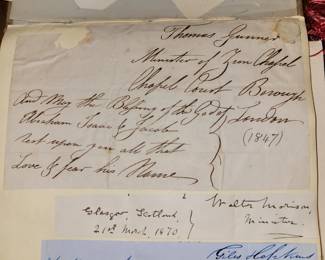 Thomas Gunner
Minister of Zion Chapel
Chapel Court Borough
London
(1847)
And May the Blessing of the God of
Abraham Isaac & Jacob
rest upon you all that
Love & fear his Name
Glasgow, Scotland,
21st March, 1870
Walter Morison,
Minister.
Giles Hopkins